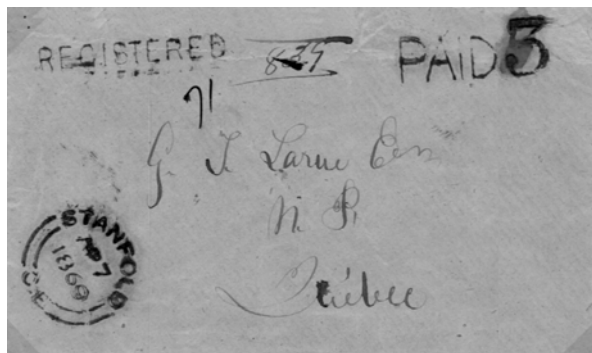 REGISTERED
PAID 5
G. T. Larue
N. P.
Québec
STANFOLD
AP 7
1869
C.E.